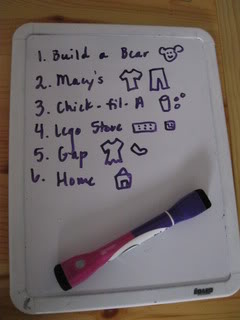 1. Build a Bear
2. Macy's
3. Chick-fil-A
4. Lego Store
5. Gap
6. Home